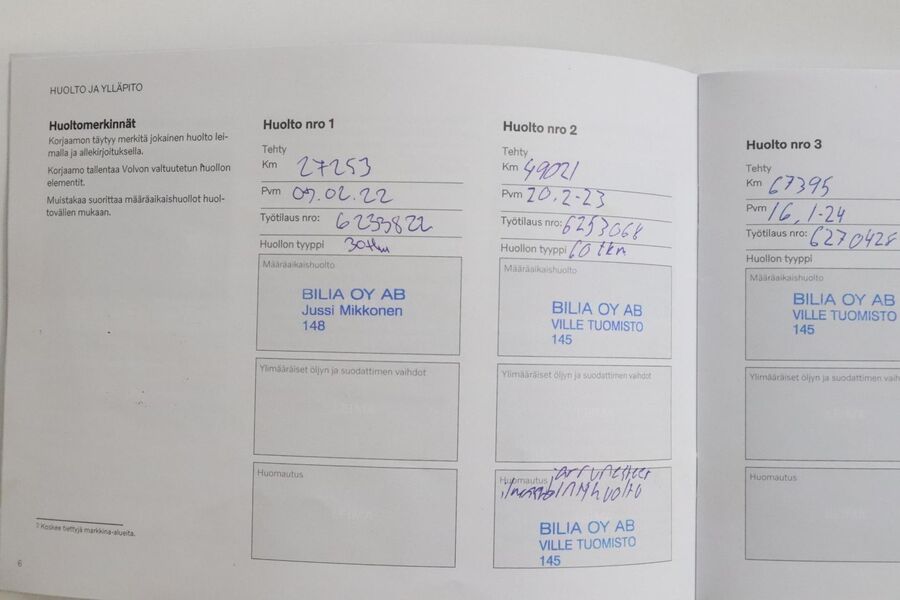 HUOLTO JA YLLÄPITO
Huoltomerkinnät
Korjaamon täytyy merkitä jokainen huolto lei-
malla ja allekirjoituksella.
Korjaamo tallentaa Volvon valtuutetun huollon
elementit.
Muistakaa suorittaa määräaikaishuollot huol-
tovälien mukaan.
7 Koskee tiettyjä markkina-alueita.
6
Huolto nro 1
Tehty
Km 27253
Pvm 09.02.22
Työtilaus nro: 6239822
Huollon tyyppi 30tkm
Määräaikaishuolto
BILIA OY AB
Jussi Mikkonen
148
Ylimääräiset öljyn ja suodattimen vaihdot
Huomautus
Huolto nro 2
Tehty
Km 49021
Pvm 20.2-23
Työtilaus nro: 6253068
Huollon tyyppi 60 tkm
Määräaikaishuolto
BILIA OY AB
VILLE TUOMISTO
145
Ylimääräiset öljyn ja suodattimen vaihdot
Huomautus
BILIA OY AB
VILLE TUOMISTO
145
Huolto nro 3
Tehty
Km 67395
Pvm 16.1-24
Työtilaus nro: 6270428
Huollon tyyppi
Määräaikaishuolto
BILIA OY AB
VILLE TUOMISTO
145
Ylimääräiset öljyn ja suodattimen vaih
Huomautus